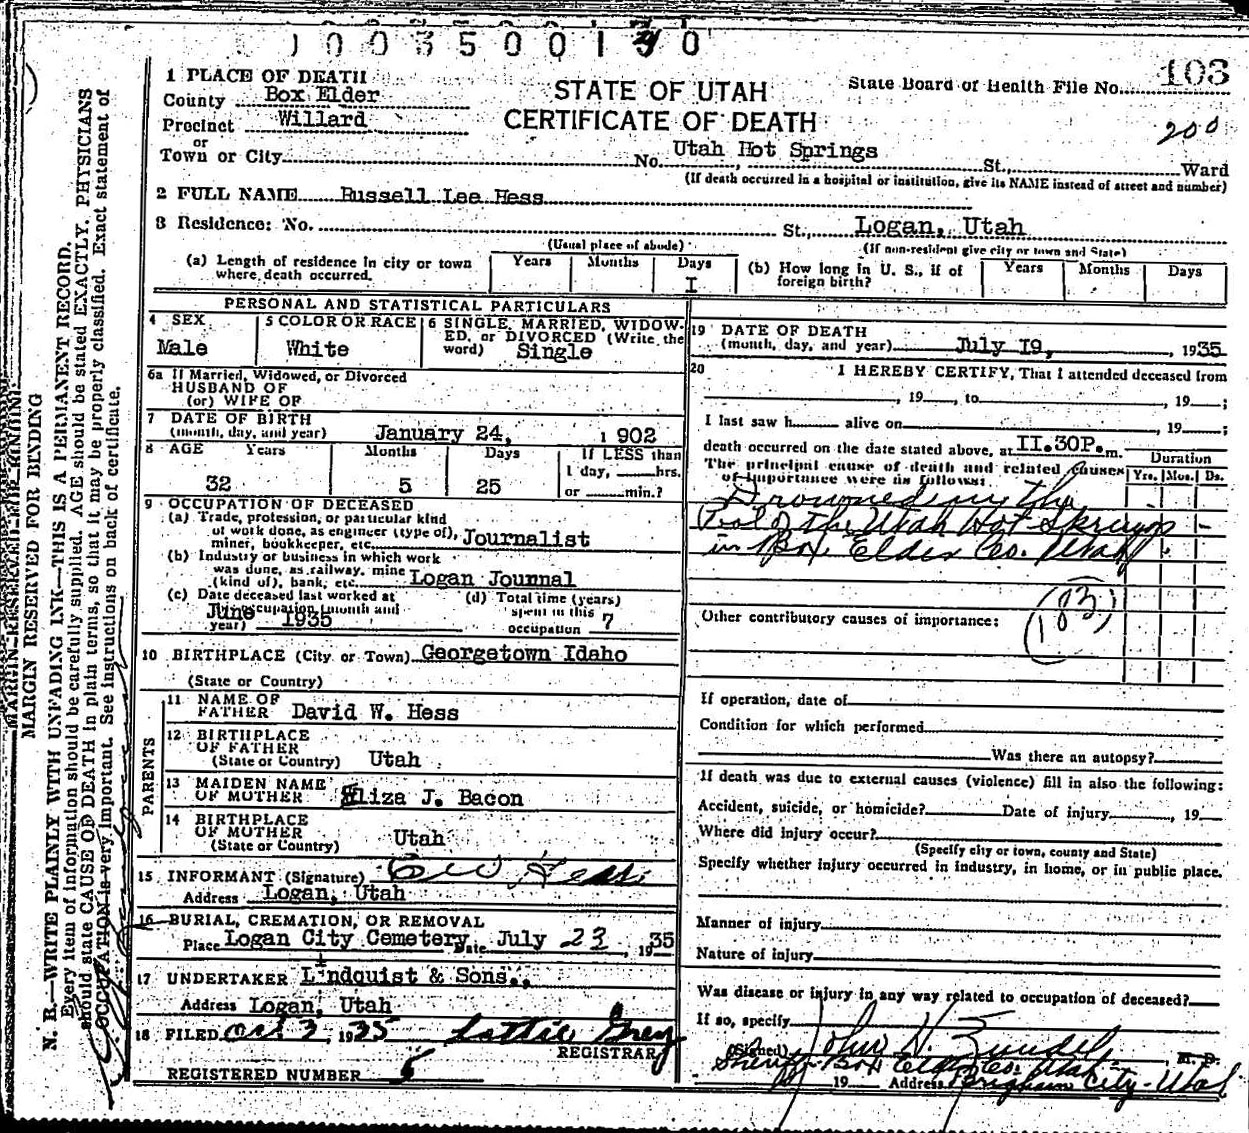 1003500130
1 PLACE OF DEATH
County Box Elder
Precinct Willard
or
Town or City
STATE OF UTAH
CERTIFICATE OF DEATH
State Board of Health File No. 103
200
No. Utah Hot Springs St., Ward
(If death occurred in a hospital or institution, give its NAME instead of street and number)
2 FULL NAME Russell Lee Hess
3 Residence: No. St., Logan, Utah
(Usual place of abode) (If non-resident give city or town and State)
(a) Length of residence in city or town where death occurred. Years Months Days I
(b) How long in U. S., if of foreign birth? Years Months Days
PERSONAL AND STATISTICAL PARTICULARS
4 SEX Male
5 COLOR OR RACE White
6 SINGLE, MARRIED, WIDOWED, or DIVORCED (Write the word) Single
6a If Married, Widowed, or Divorced
HUSBAND OF
(or) WIFE OF
7 DATE OF BIRTH
(month, day, and year) January 24, 1902
8 AGE Years Months Days If LESS than
1 day, hrs.
32 5 25 or min.?
9 OCCUPATION OF DECEASED
(a) Trade, profession, or particular kind
of work done, as engineer (type of),
miner, bookkeeper, etc. Journalist
(b) Industry or business in which work
was done, as railway, mine
(kind of), bank, etc. Logan Journal
(c) Date deceased last worked at
this occupation (month and
year) June 1935
(d) Total time (years)
spent in this
occupation 7
10 BIRTHPLACE (City or Town) Georgetown Idaho
(State or Country)
PARENTS
11 NAME OF
FATHER David W. Hess
12 BIRTHPLACE
OF FATHER
(State or Country) Utah
13 MAIDEN NAME
OF MOTHER Eliza J. Bacon
14 BIRTHPLACE
OF MOTHER
(State or Country) Utah
15 INFORMANT (Signature) Hess
Address Logan, Utah
16 BURIAL, CREMATION, OR REMOVAL
Place Logan City Cemetery Date July 23, 1935
17 UNDERTAKER Lindquist & Sons.,
Address Logan, Utah
18 FILED Oct 3, 1935 Lottie Grey
REGISTRAR
REGISTERED NUMBER 5
19 DATE OF DEATH
(month, day, and year) July 19, , 1935
20 I HEREBY CERTIFY, That I attended deceased from
, 19 , to , 19 ;
I last saw h alive on , 19 ;
death occurred on the date stated above, at II.30P.m.
The principal cause of death and related causes
of importance were as follows:
Duration
Yrs. Mos. Ds.
Drowned in the
Pool of the Utah Hot Springs
in Box Elder Co. Utah
(183)
Other contributory causes of importance:
If operation, date of
Condition for which performed
Was there an autopsy?
If death was due to external causes (violence) fill in also the following:
Accident, suicide, or homicide? Date of injury , 19
Where did injury occur?
(Specify city or town, county and State)
Specify whether injury occurred in industry, in home, or in public place.
Manner of injury
Nature of injury
Was disease or injury in any way related to occupation of deceased?
If so, specify
(Signed) John H. Zundel, M. D.
Sheriff Box Elder Co. Utah
19 Address Brigham City-Utah
MARGIN RESERVED FOR BINDING
MARGIN RESERVED FOR BINDING
N. B.—WRITE PLAINLY WITH UNFADING INK—THIS IS A PERMANENT RECORD.
Every item of information should be carefully supplied. AGE should be stated EXACTLY. PHYSICIANS
should state CAUSE OF DEATH in plain terms, so that it may be properly classified. Exact statement of
OCCUPATION is very important. See instructions on back of certificate.